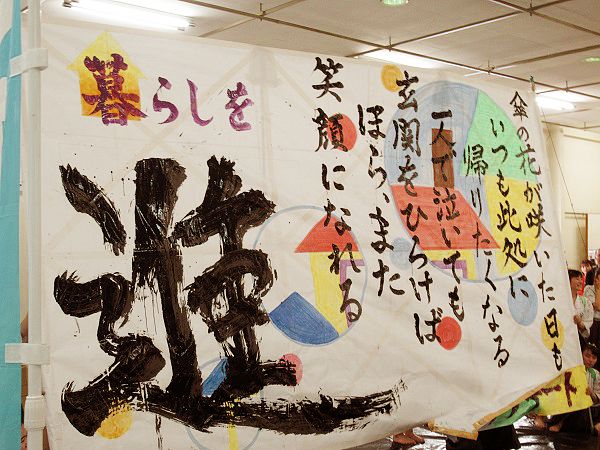 傘の花が咲いた日も
いつも此処に
帰りたくなる
一人で泣いても
玄関をひらけば
ほら、また
笑顔になれる
暮らしを
遊